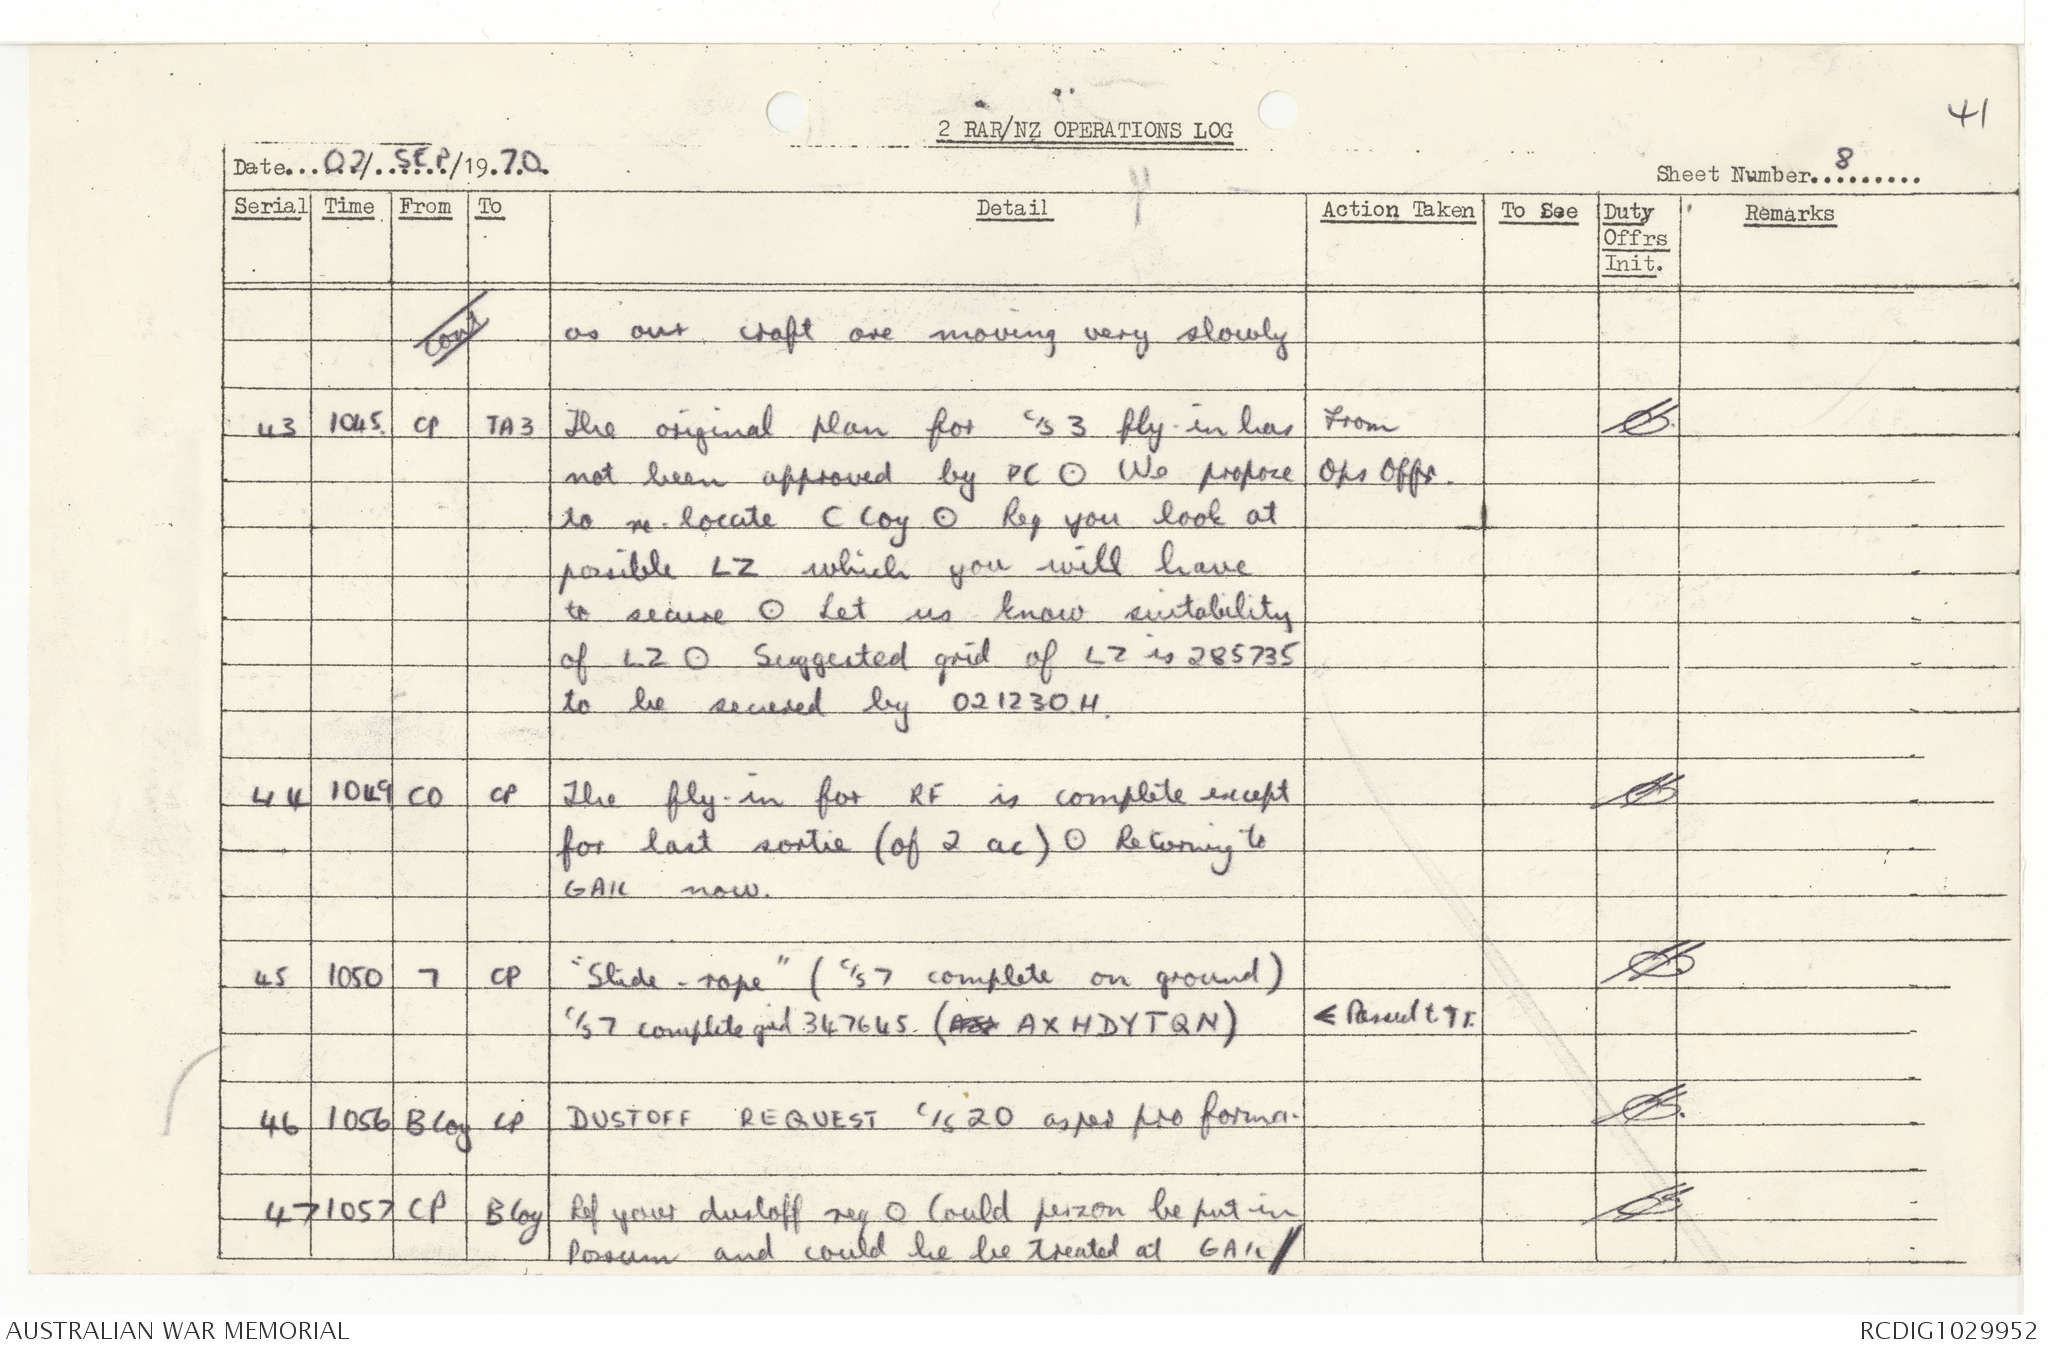 41
2 RAR/NZ OPERATIONS LOG
Date...02/.SEP./19.70.
Sheet Number...8......
Serial Time From To Detail Action Taken To See Duty Offrs Init. Remarks
Cont as our craft are moving very slowly
43 1045. CP TA3 The original plan for c/s 3 fly-in has From
not been approved by PC ⊙ We propose Ops Offr.
to re-locate C Coy ⊙ Req you look at
possible LZ which you will have
to secure ⊙ Let us know suitability
of LZ ⊙ Suggested grid of LZ is 285735
to be secured by 021230H.
44 1049 CO CP The fly-in for RF is complete except
for last sortie (of 2 ac) ⊙ Returning to
GAIL now.
45 1050 7 CP "Slide-rope" (c/s 7 complete on ground)
c/s 7 complete grid 347645. (AXHDYTQN) < Passed to TF.
46 1056 B Coy CP DUSTOFF REQUEST c/s 20 as per pro forma.
47 1057 CP B Coy Ref your dustoff req ⊙ Could person be put in
Possum and could he be treated at GAIL/
AUSTRALIAN WAR MEMORIAL
RCDIG1029952